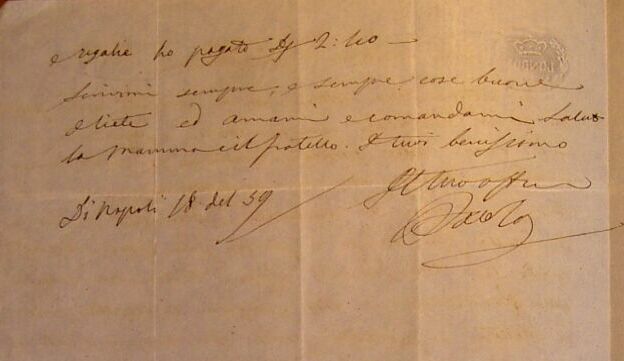 e regalie ho pagato Dj 2:40 —
Scrivimi sempre, e sempre cose buone
e liete ed amami e comandami Saluta
la Mamma e il fratello. I tuoi benissimo
Di Napoli 18 del 39
Il tuo aff